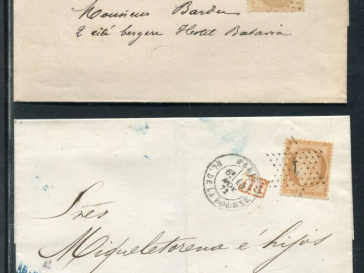 Monsieur Bardou
2 cité bergere Hotel Batavia
P.D
Sres
Migueletorena é hijos